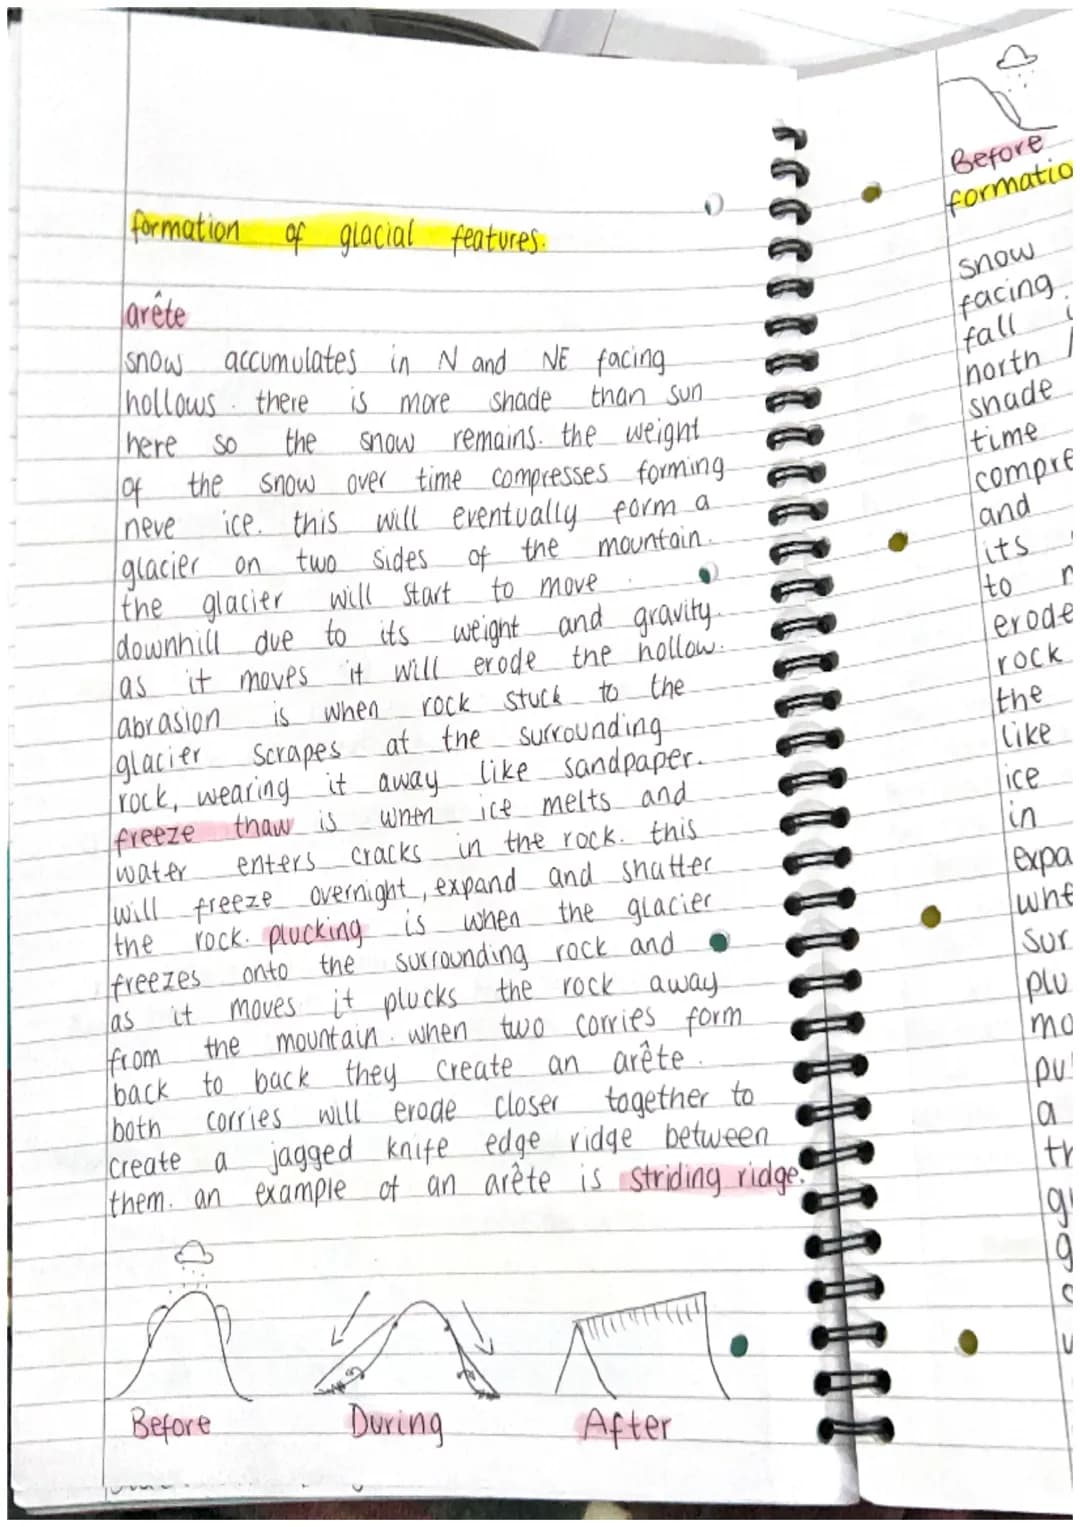 formation of glacial features.
arête
snow accumulates in N and NE facing
hollows. there is more shade than sun
here so the snow remains. the weight
of the snow over time compresses forming
neve ice. this will eventually form a
glacier on two sides of the mountain.
the glacier will start to move
downhill due to its weight and gravity.
as it moves it will erode the hollow.
abrasion is when rock stuck to the
glacier scrapes at the surrounding
rock, wearing it away like sandpaper.
freeze thaw is when ice melts and
water enters cracks in the rock. this
will freeze overnight, expand and shatter
the rock. plucking is when the glacier
freezes onto the surrounding rock and
as it moves it plucks the rock away
from the mountain. when two corries form
back to back they create an arête.
both corries will erode closer together to
create a jagged knife edge ridge between
them. an example of an arête is striding ridge.
Before During After
Before
formatio
snow
facing
fall
north
shade
time
compre
and
its
to
erode
rock
the
like
ice
in
expa
whe
sur
plu
mo
pu
a